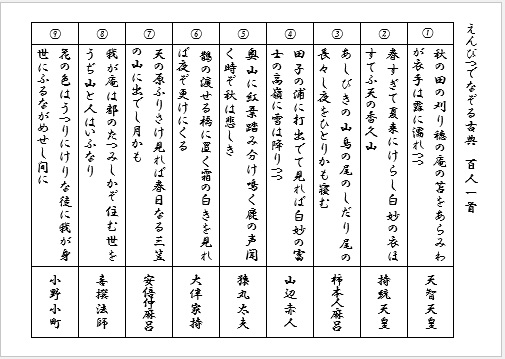 えんぴつでなぞる古典　百人一首
①
秋の田の刈り穂の庵の苫をあらみわ
が衣手は露に濡れつつ
天智天皇
②
春すぎて夏来にけらし白妙の衣ほ
すてふ天の香久山
持統天皇
③
あしびきの山鳥の尾のしだり尾の
長々し夜をひとりかも寝む
柿本人麻呂
④
田子の浦に打出でて見れば白妙の富
士の高嶺に雪は降りつつ
山辺赤人
⑤
奥山に紅葉踏み分け鳴く鹿の声聞
く時ぞ秋は悲しき
猿丸太夫
⑥
鵲の渡せる橋に置く霜の白きを見れ
ば夜ぞ更けにくる
大伴家持
⑦
天の原ふりさけ見れば春日なる三笠
の山に出でし月かも
安倍仲麻呂
⑧
我が庵は都のたつみしかぞ住む世を
うぢ山と人はいふなり
喜撰法師
⑨
花の色はうつりにけりな徒に我が身
世にふるながめせし間に
小野小町